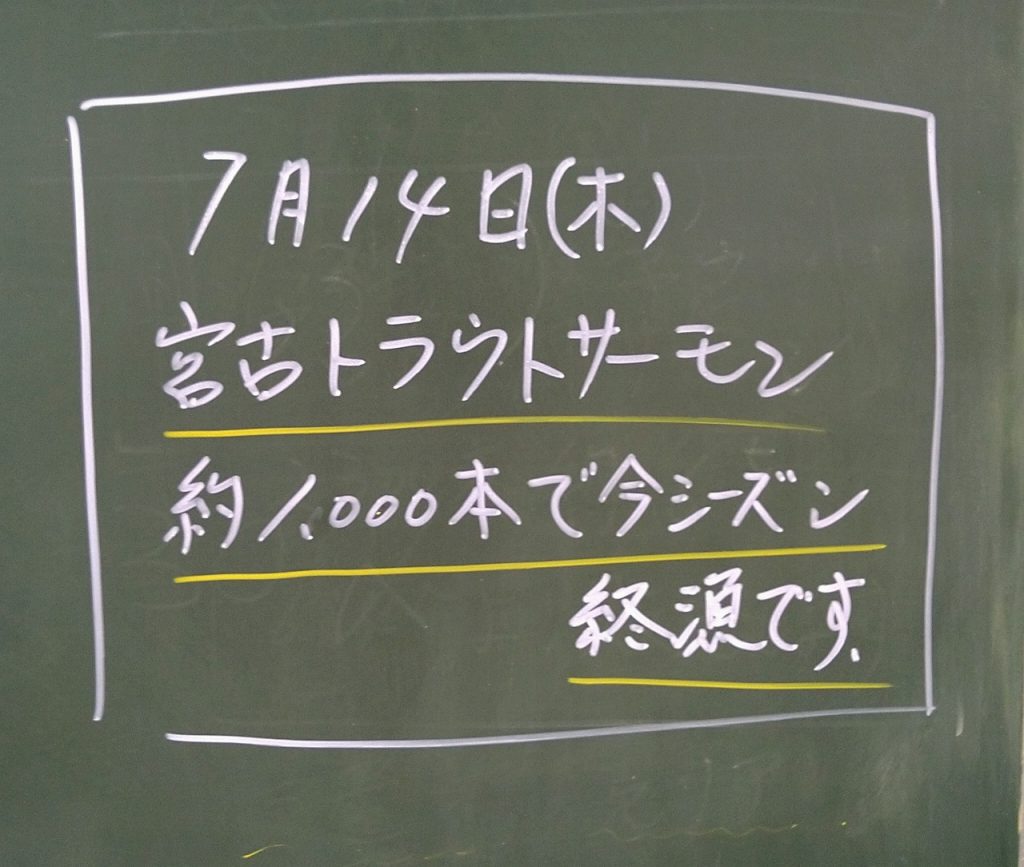 7月14日(木)
宮古トラウトサーモン
約1,000本で今シーズン
終漁です.